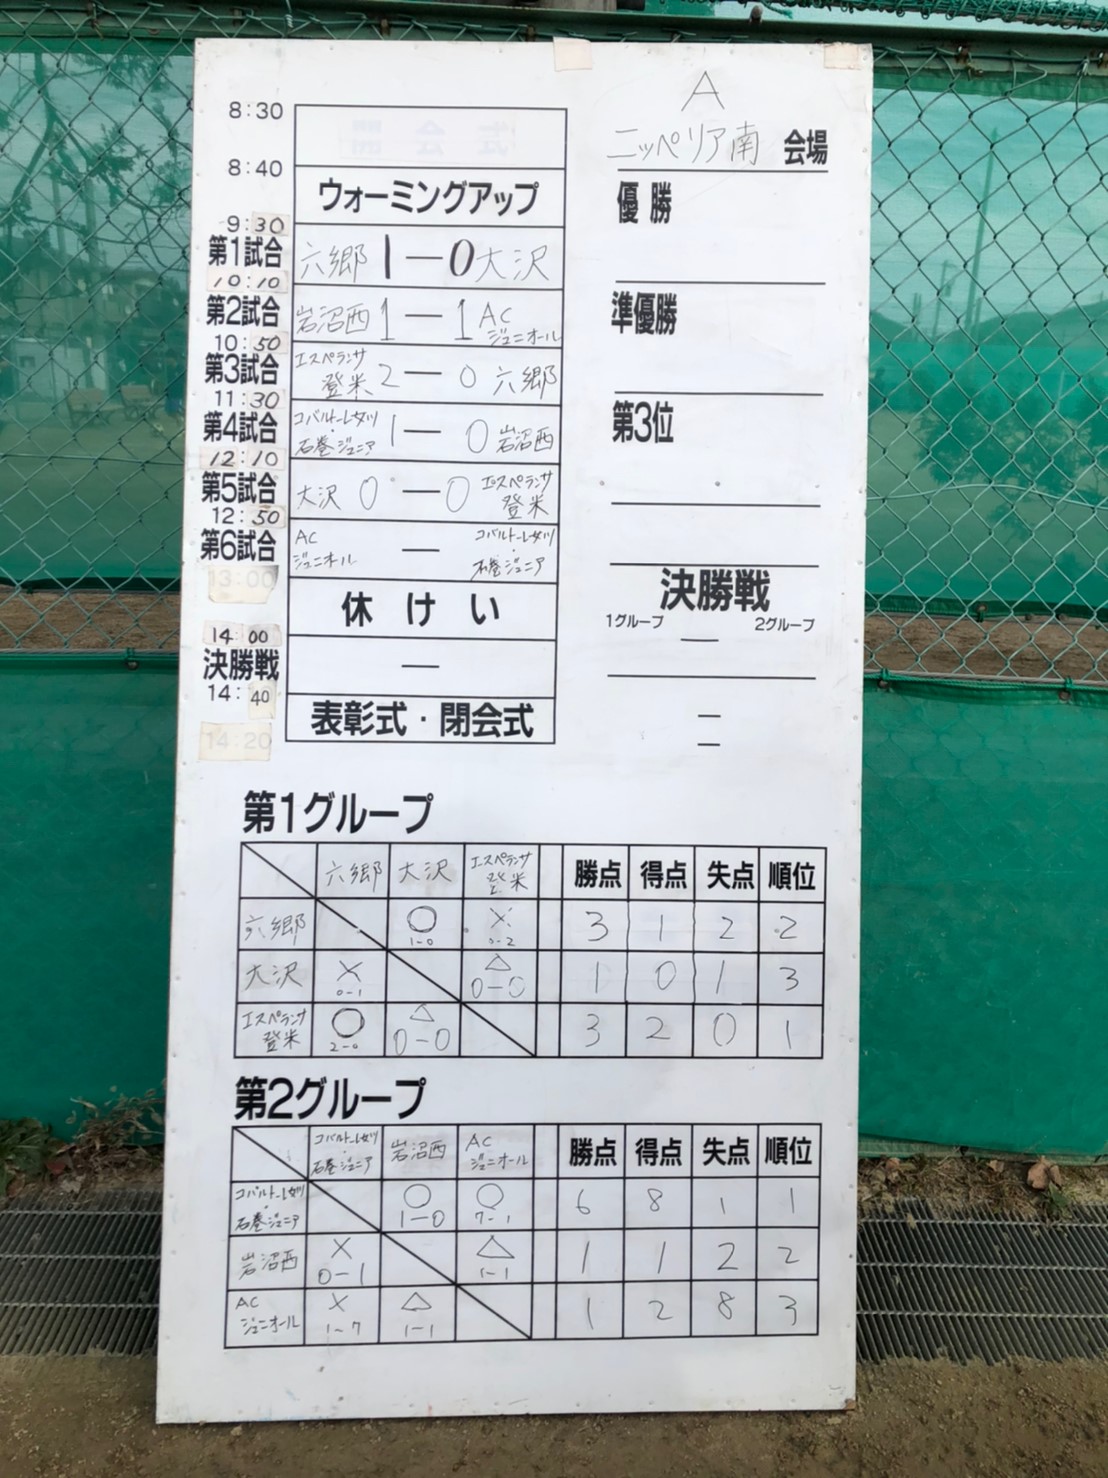 A
ニッペリア南 会場
8:30
8:40
ウォーミングアップ
9:30
第1試合 六郷 1―0 大沢
10:10
第2試合 岩沼西 1―1 AC ジュニオール
10:50
第3試合 エスペランサ登米 2―0 六郷
11:30
第4試合 コバルトーレ女川・石巻ジュニア 1―0 岩沼西
12:10
第5試合 大沢 0―0 エスペランサ登米
12:50
第6試合 AC ジュニオール ― コバルトーレ女川・石巻ジュニア
13:00
休けい
14:00
決勝戦 ―
14:40
表彰式・閉会式
14:20
優勝
準優勝
第3位
決勝戦
1グループ ― 2グループ
第1グループ
六郷 大沢 エスペランサ登米 勝点 得点 失点 順位
六郷 ○ 1-0 × 0-2 3 1 2 2
大沢 × 0-1 △ 0-0 1 0 1 3
エスペランサ登米 ○ 2-0 △ 0-0 3 2 0 1
第2グループ
コバルトーレ女川・石巻ジュニア 岩沼西 AC ジュニオール 勝点 得点 失点 順位
コバルトーレ女川・石巻ジュニア ○ 1-0 ○ 7-1 6 8 1 1
岩沼西 × 0-1 △ 1-1 1 1 2 2
AC ジュニオール × 1-7 △ 1-1 1 2 8 3